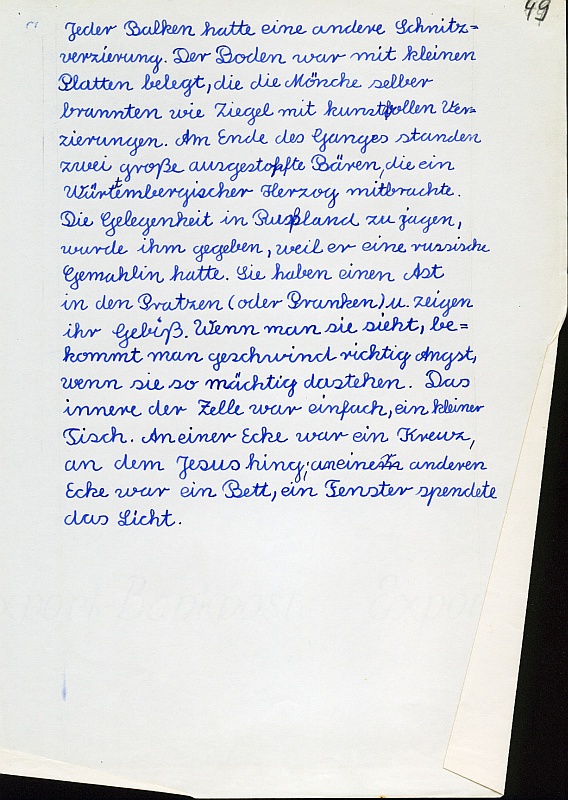 49
Jeder Balken hatte eine andere Schnitz=
verzierung. Der Boden war mit kleinen
Platten belegt, die die Mönche selber
brannten wie Ziegel mit kunstvollen Ver=
zierungen. Am Ende des Ganges standen
zwei große ausgestopfte Bären, die ein
Württembergischer Herzog mitbrachte.
Die Gelegenheit in Rußland zu jagen,
wurde ihm gegeben, weil er eine russische
Gemahlin hatte. Sie haben einen Ast
in den Pratzen (oder Pranken) u. zeigen
ihr Gebiß. Wenn man sie sieht, be=
kommt man geschwind richtig Angst,
wenn sie so mächtig dastehen. Das
innere der Zelle war einfach, ein kleiner
Tisch. An einer Ecke war ein Kreuz,
an dem Jesus hing; an einer anderen
Ecke war ein Bett, ein Fenster spendete
das Licht.